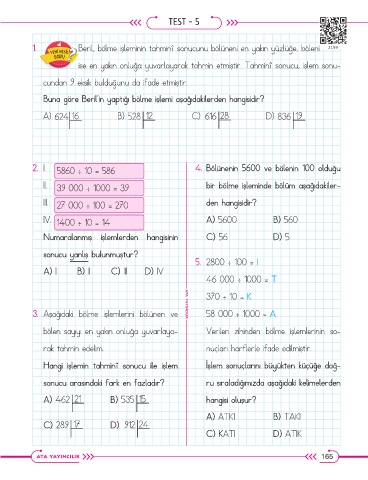 TEST - 5
1. Beril, bölme işleminin tahminî sonucunu bölüneni en yakın yüzlüğe, böleni
ise en yakın onluğa yuvarlayarak tahmin etmiştir. Tahminî sonucu, işlem sonu-
cundan 9 eksik bulduğunu da ifade etmiştir.
Buna göre Beril'in yaptığı bölme işlemi aşağıdakilerden hangisidir?
A) 624 16 B) 528 12 C) 616 28 D) 836 19
2. I. 5860 ÷ 10 = 586
II. 39 000 ÷ 1000 = 39
III. 27 000 ÷ 100 = 270
IV. 1400 ÷ 10 = 14
Numaralanmış işlemlerden hangisinin
sonucu yanlış bulunmuştur?
A) I B) II C) III D) IV
3. Aşağıdaki bölme işlemlerini bölünen ve
bölen sayıyı en yakın onluğa yuvarlaya-
rak tahmin edelim.
Hangi işlemin tahminî sonucu ile işlem
sonucu arasındaki fark en fazladır?
A) 462 21 B) 535 15
C) 289 17 D) 912 24
4. Bölünenin 5600 ve bölenin 100 olduğu
bir bölme işleminde bölüm aşağıdakiler-
den hangisidir?
A) 5600 B) 560
C) 56 D) 5
5. 2800 ÷ 100 = I
46 000 ÷ 1000 = T
370 ÷ 10 = K
58 000 ÷ 1000 = A
Verilen zihinden bölme işlemlerinin so-
nuçları harflerle ifade edilmiştir.
İşlem sonuçlarını büyükten küçüğe doğ-
ru sıraladığımızda aşağıdaki kelimelerden
hangisi oluşur?
A) ATKI B) TAKI
C) KATI D) ATIK
ATA YAYINCILIK
165